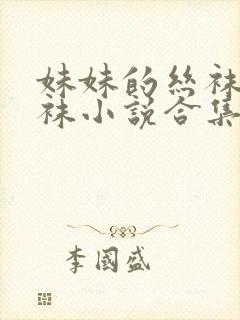 妹妹的丝袜
袜小说合集
李国盛